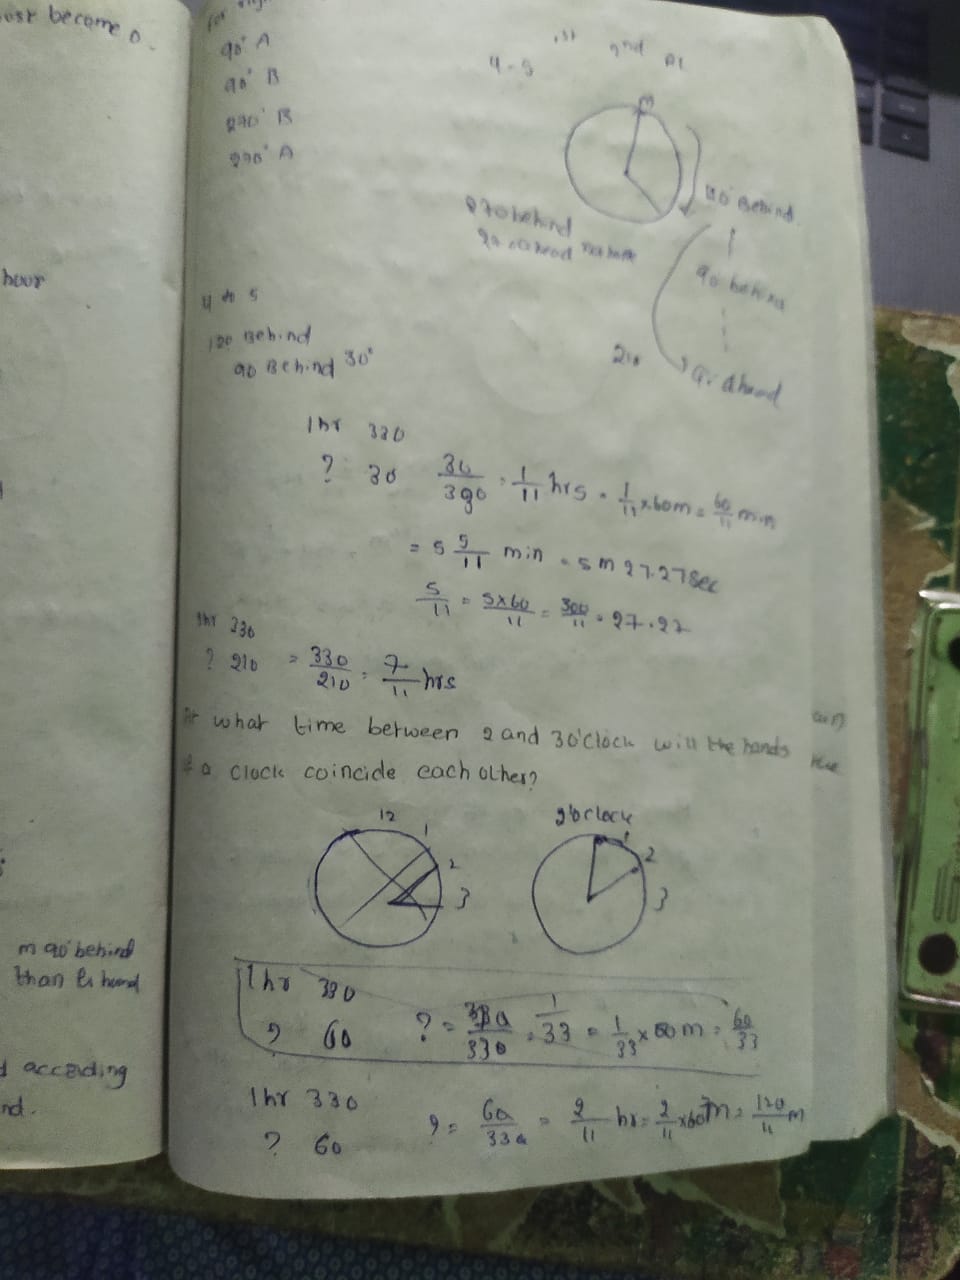 ost become 0.
hour
m 90° behind
than hr hand
d according
nd.
for
90° A
90° B
270° B
270° A
1st 2nd
4-5
m
120 Behind.
90 behind
90° ahead
210
270 behind
4 to 5
120 Behind
90 Behind 30°
1hr 330
? 30 30/330 = 1/11 hrs = 1/11 x 60m = 60/11 min
= 5 5/11 min = 5m 27.27 sec
5/11 = 5x60/11 = 300/11 = 27.27
1hr 330
? 210 = 330/210 = 7/11 hrs
At what time between 2 and 3 o'clock will the hands
of a clock coincide each other?
12 1 2 3
2'o clock
1 2 3
1hr 330
? 60 ? = 330/330 = 1/33 = 1/33 x 60m = 60/33
1hr 330
? 60 ? = 60/330 = 2/11 hr = 2/11 x 60m = 120/11 m